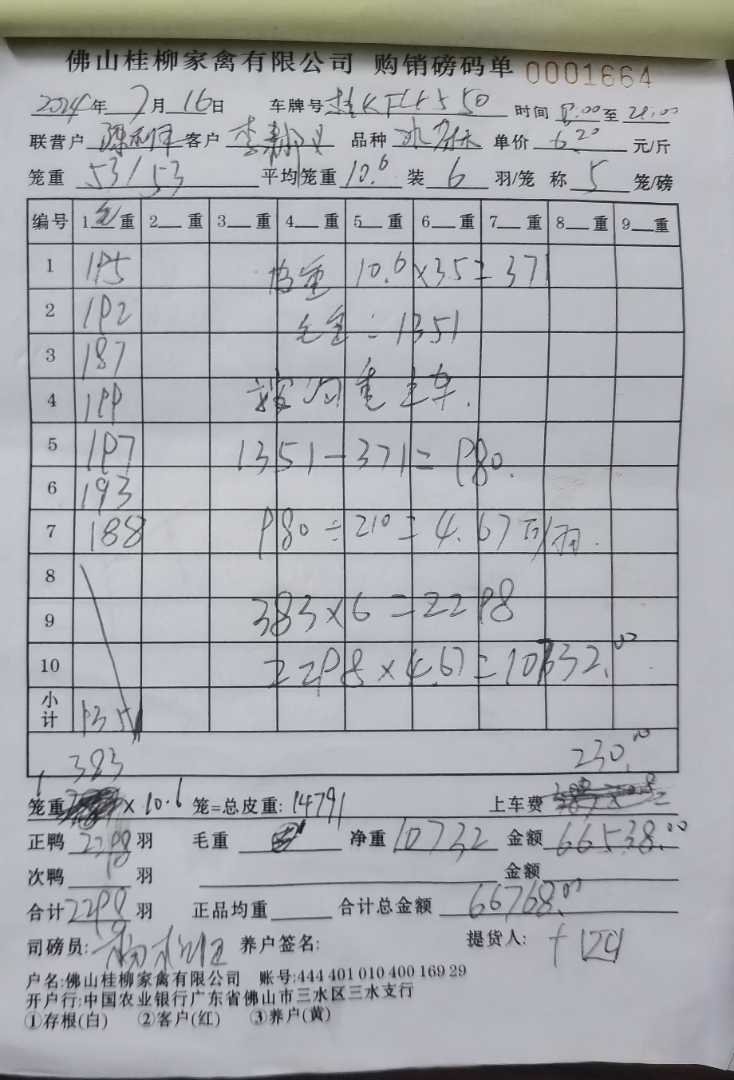 佛山桂柳家禽有限公司 购销磅码单 0001664
2024年7月16日 车牌号 时间 8:00至
联营户 客户 李 品种 单价 6.20 元/斤
笼重 53/53 平均笼重 10.6 装 6 羽/笼 称 5 笼/磅
编号 1毛重 2 重 3 重 4 重 5 重 6 重 7 重 8 重 9 重
1 195 10.6×35=371
2 192 毛重=1351
3 187
4 199 均重上车.
5 197 1351-371=980.
6 193
7 188 980÷210=4.67斤/羽.
8
9 383×6=2298
10 2298×4.67=10732.00
小计 1351
383 230.00
笼重 ×10.6 笼=总皮重: 上车费
正鸭 2298 羽 毛重 净重 10732 金额 66538.00
次鸭 羽 金额
合计 2298 羽 正品均重 合计总金额 66768.00
司磅员: 养户签名: 提货人:
户名:佛山桂柳家禽有限公司 账号:444 401 010 400 169 29
开户行:中国农业银行广东省佛山市三水区三水支行
①存根(白) ②客户(红) ③养户(黄)